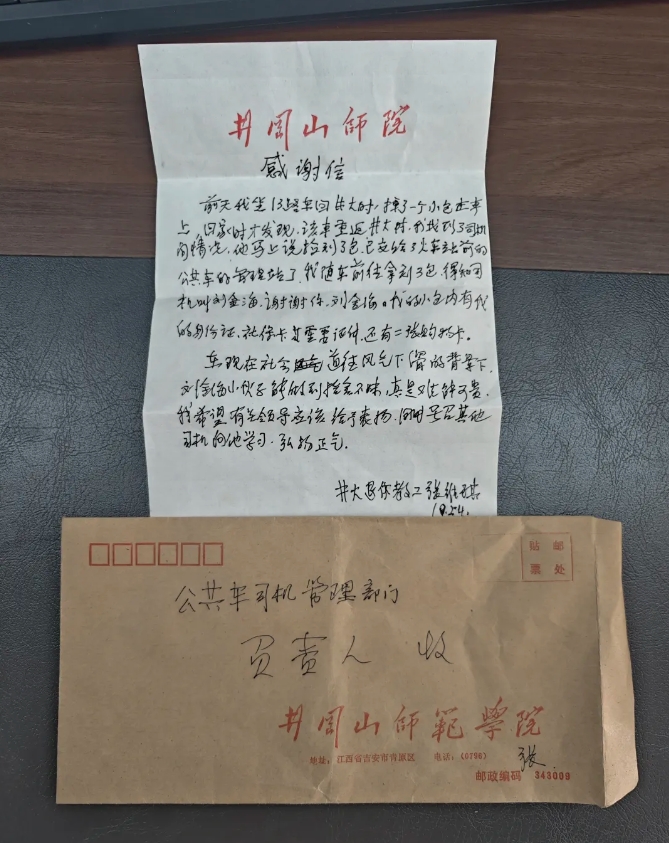 井冈山师院
感谢信
前天我坐13路车回井大时,掉了一个小包在车
上,回家时才发现。该车重返井大时,我找到了司机
问情况,他马上说捡到了包,已交给了火车站前的
公共车的管理站了,我随车前往拿到了包,得知司
机叫刘金海,谢谢你,刘金海。我的小包内有我
的身份证、社保卡等重要证件,还有二张购物卡。
在现在社会道德风气下滑的背景下,
刘金海小伙子能做到拾金不昧,真是难能可贵,
我希望有关领导应该给予表扬,同时号召其他
司机向他学习,弘扬正气。
井大退休教工张维
公共车司机管理部门
负责人 收
贴邮
票处
井冈山师范学院
地址:江西省吉安市青原区 电话:(0796)
张
邮政编码 343009